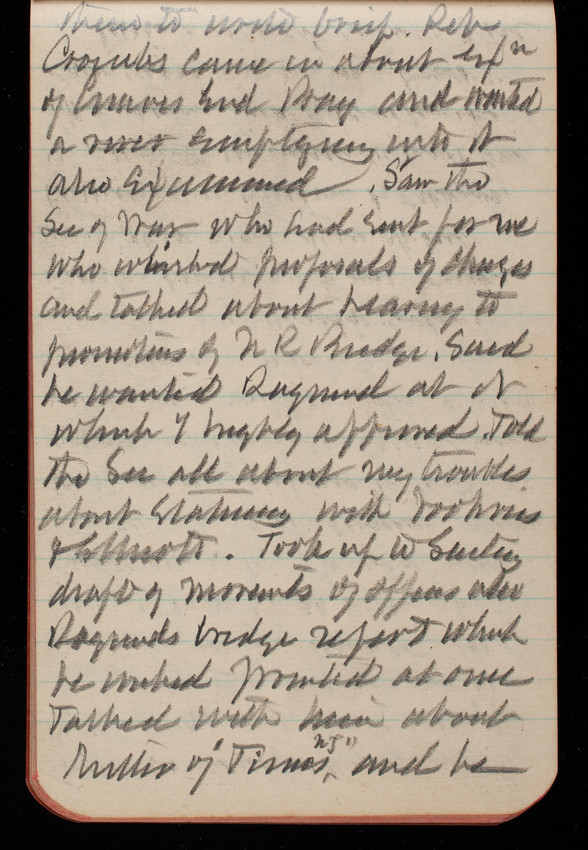 them to write brief. Rep
Crozubs came in about Exp n
of Graves End Bay and wanted
a river emptying into it
also Examined. Saw the
Sec of War who had sent for me
who wished proposals of changes
and talked about hearing to
promotions of N R Bridge. Said
he wanted Raymond at it
which I highly approved. Told
the Sec all about my troubles
about Statuary with
& Elliott. Took up to
draft of movements of officers also
Raymonds bridge report which
he wished printed at once
Talked with him about
of Times, and he